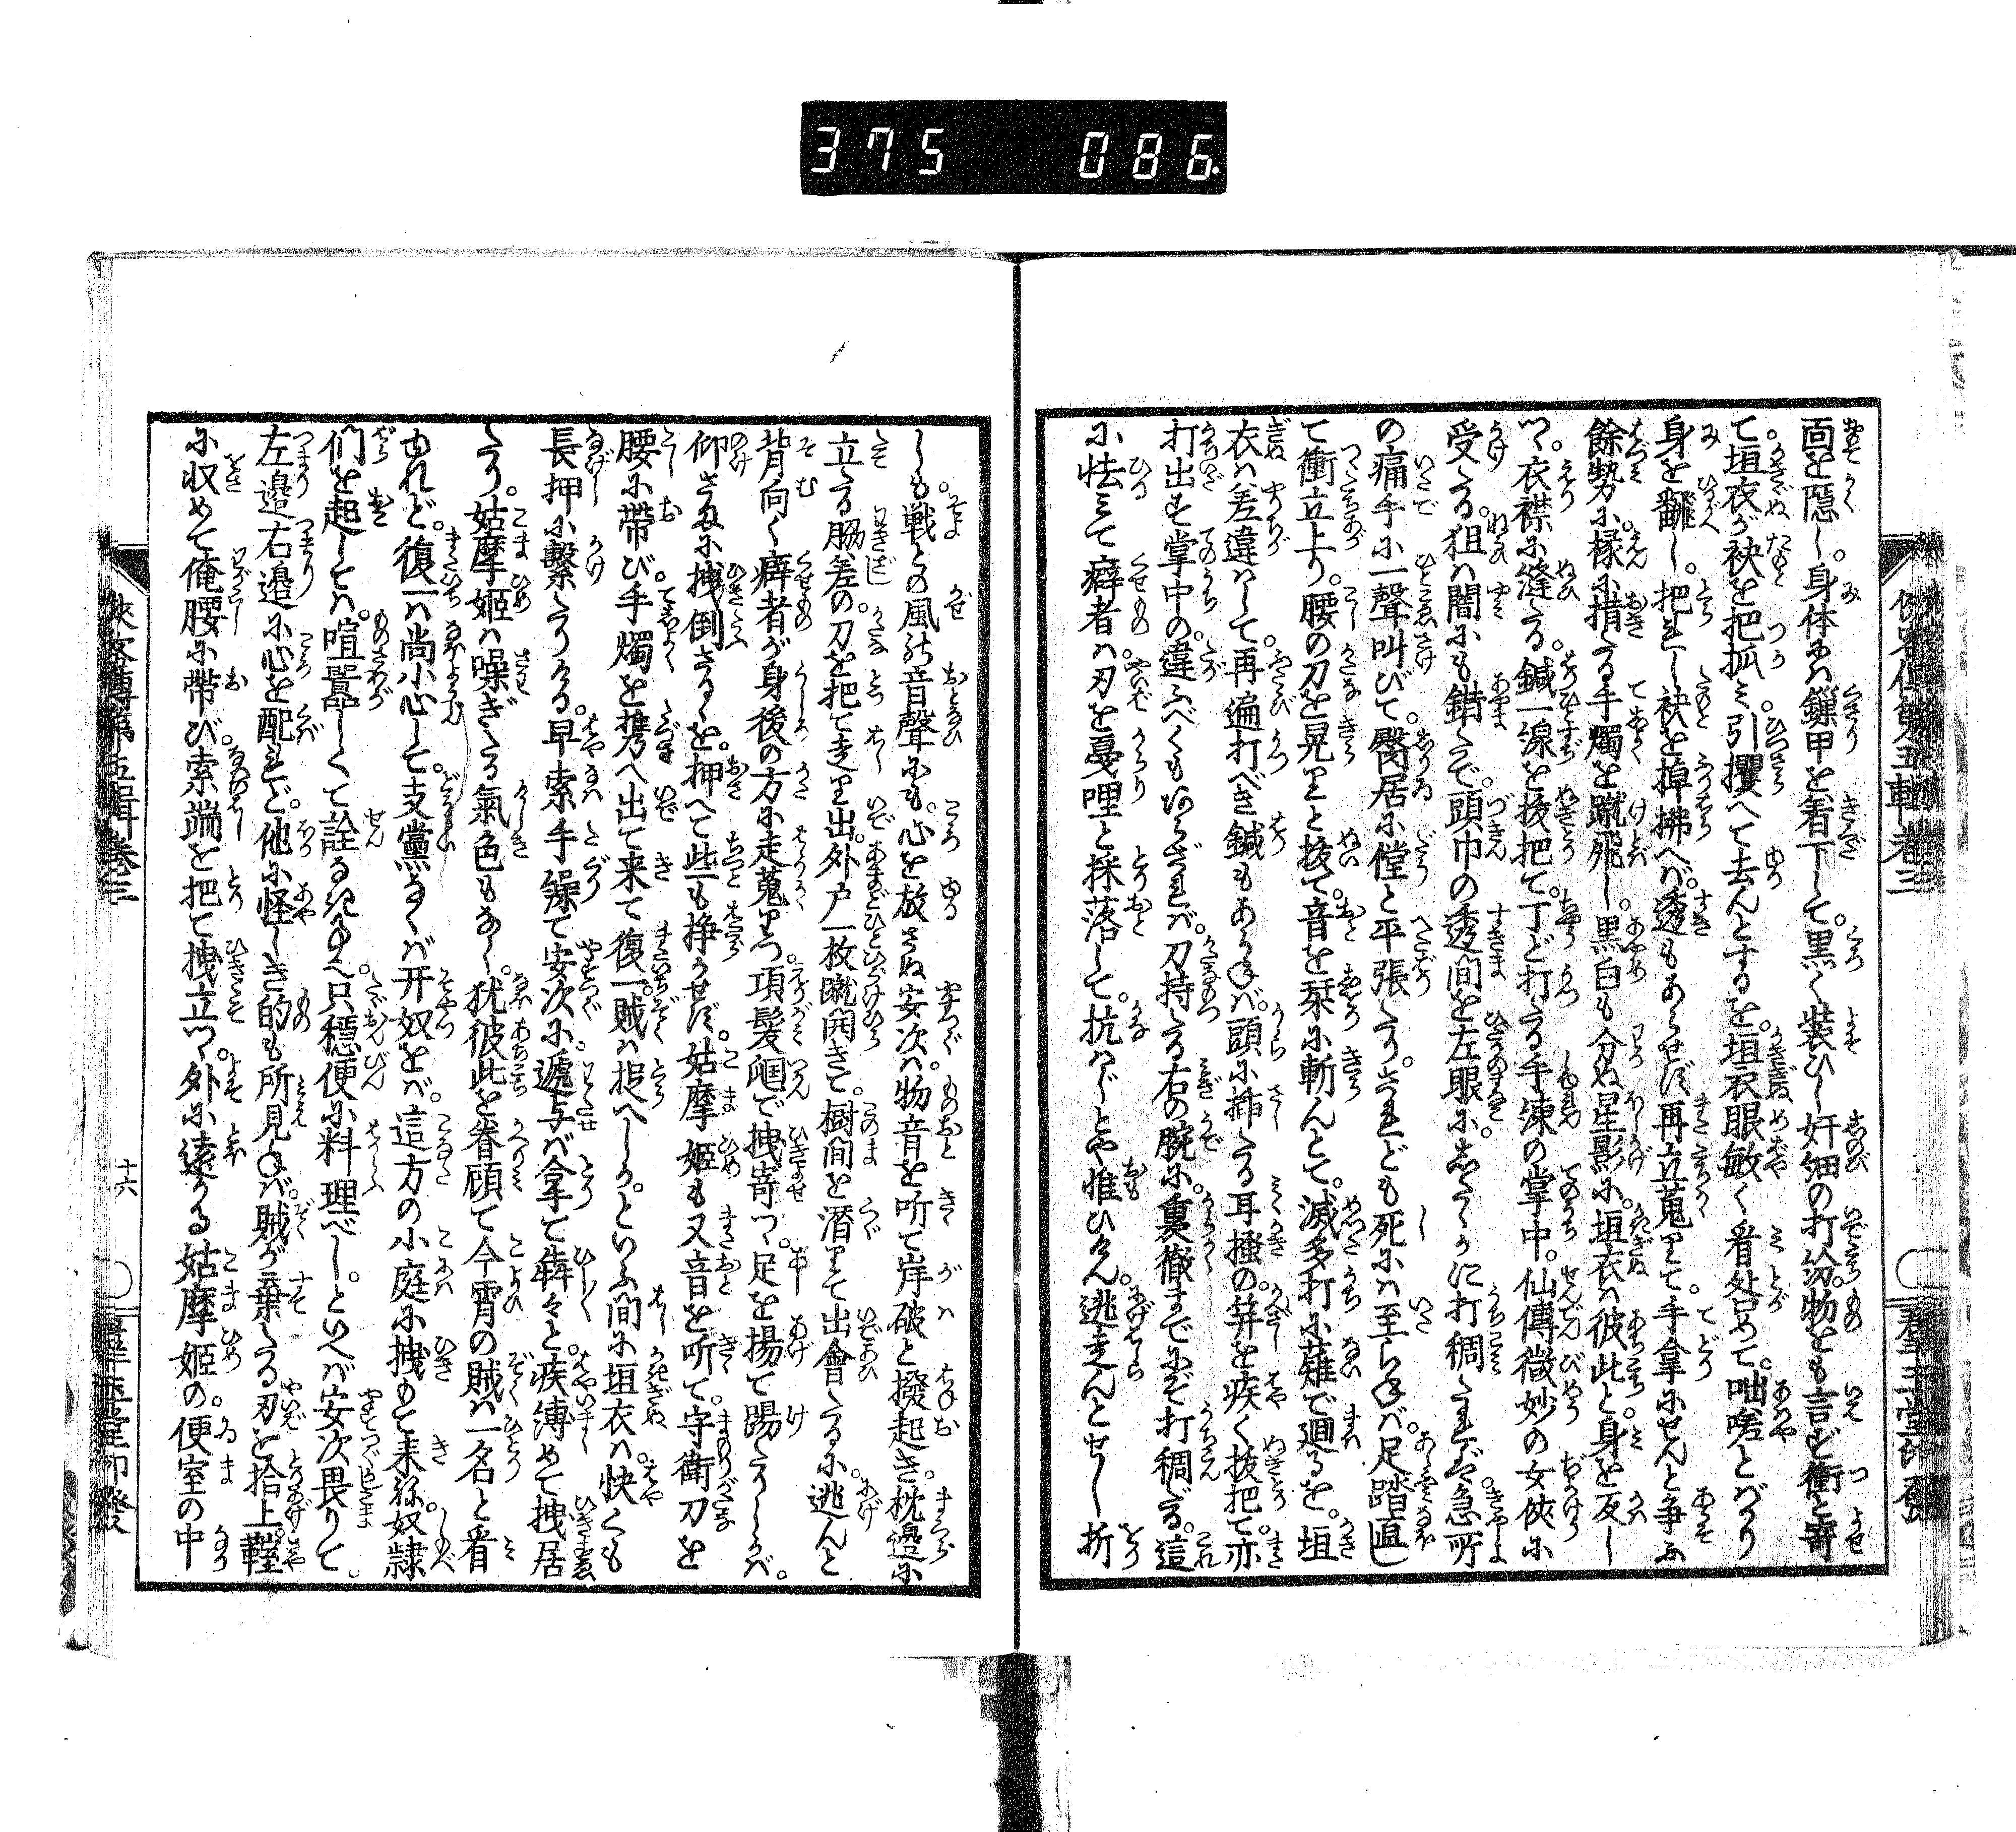 375 086
面を隠し。身体には鏁甲を着下して。黒く装ひし奸細の打扮。物をも言ず衝と寄
て。垣衣が袂を把抓み。引攫へて去んとするを。垣衣眼敏く看咎めて。咄嗟とばかり
身を飜し。把れし袂を掉拂へば。透もあらせず再立蒐りて。手拿にせんと爭ふ
餘勢に。椽に措たる手燭を蹴飛し。黒白も分ぬ星影に。垣衣は彼此と。身を反し
つゝ。衣襟に縫たる。鍼一線を抜把て。丁ど打たる手凍の掌中。仙傳微妙の女侠に
受たる。狙は闇にも錯たで。頭巾の透間を左眼に。したゝかに打稠たれば。急所
の痛手に一聲叫びて。臀居に僜と平張たり。されども死には至らねば。足踏直し
て衝立上り。腰の刀を晃りと抜て。音を栞に斬んとて。滅多打に薙で廻るを。垣
衣は差違はして。再遍打べき鍼もあらねば。頭に插たる耳掻の。笄を疾く抜把て。亦
打出す掌中の。違ふべくもあらざれば。刀持たる右の腕に。裏徹までにぞ打稠ける。這
に怯みて癖者は。刃を戛哩と採落して。抗はじとや惟ひけん。逃走んとせし折
俠客傳第五輯卷三
しも。戦との風の音聲にも。心を放さぬ安次は。物音を听て岸破と撥起き。枕邊に
立たる脇差の。刀を把て走り出。外戸一枚蹴開きて。樹間を濳りて出會たるに。逃んと
背向く癖者が。身後の方に走蒐りつ。項髪𢴤で拽寄つ。足を揚て踢たりしかば。
仰さまに拽倒さるゝを。押へて些も掙かせず。姑摩姫も又音を听て。守衛刀を
腰に帶び。手燭を携へ出て来て。復一。賊は捉へしか。といふ間に垣衣は。快くも
長押に繫たりける。早索手繰て安次に。遞与ば拿て犇々と。疾縛めて拽居
たり。姑摩姫は噪ぎたる氣色もなし。犹彼此を眷顧て。今宵の賊は一名と看
ゆれど。復一は尚小心して。支黨なくば开奴をば。這方の小庭に拽もて来ね。奴隷
們を起しては。喧囂しくて詮なきわざ。只穩便に料理べし。といへば安次畏りて。
左邊右邊に心を配れど。他に怪しき的も所見ねば。賊が棄たる刃を拾上。鞘
に収めて俺腰に帶び。索端を把て拽立つゝ。外に遠かる姑摩姫の。便室の中
俠客傳第五輯卷三
十六
群玉堂印發